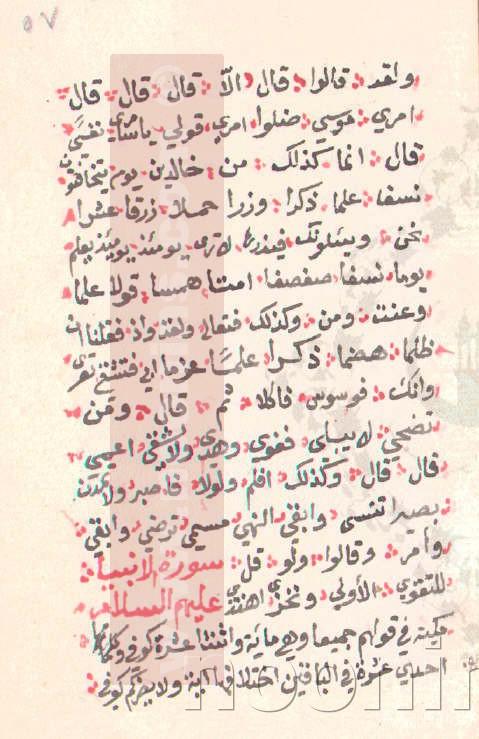 ٥٧
ولقد قالوا قال الّا قال قال قال
امري موسي ضلوا امري قولي ياسامري نفسي
قال انما كذلك من خالدين يوم يتخافتون
نسفا علما ذكرا وزرا حملا زرقا عشرا
نحن ويسئلونك فيذرها لا ترى يومئذ يومئذ يعلم
يوما نسفا صفصفا امتا همسا قولا علما
وعنت ومن وكذلك فتعالى ولقد واذ فقلنا ان
ظلما هضما ذكرا علما عزما ابى فتشقى تعرى
وانك فوسوس فاكلا ثم قال ومن
تضحي لا يبلى فغوي وهدى ولا يشقى اعمى
قال قال وكذلك افلم ولولا فاصبر ولا تمدن
بصيرا تنسى وابقي النهي مسمي ترضي وابقي
وأمر وقالوا ولو قل سورة الانبيا
للتقوي الأولي ونخزي اهتدي عليهم السلام
مكية في قولهم جميعا وهي ماية واثنتا عشرة كوفي
احدي عشرة في الباقين اختلافها اية ولا يضركم كوفي